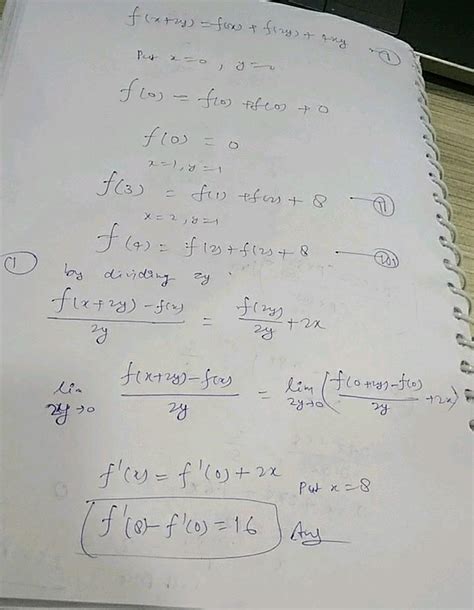 f(x+2y) = f(x) + f(2y) + 4xy — ①
Put x=0, y=0
f(0) = f(0) + f(0) + 0
f(0) = 0
x=1, y=1
f(3) = f(1) + f(2) + 8 — ②
x=2, y=1
f(4) = f(2) + f(2) + 8 — ③
① by dividing 2y.
(f(x+2y) - f(x))/2y = f(2y)/2y + 2x
lim 2y→0 (f(x+2y) - f(x))/2y = lim 2y→0 (f(0+2y) - f(0)/2y + 2x)
f'(x) = f'(0) + 2x Put x=8
f'(8) - f'(0) = 16 Ans